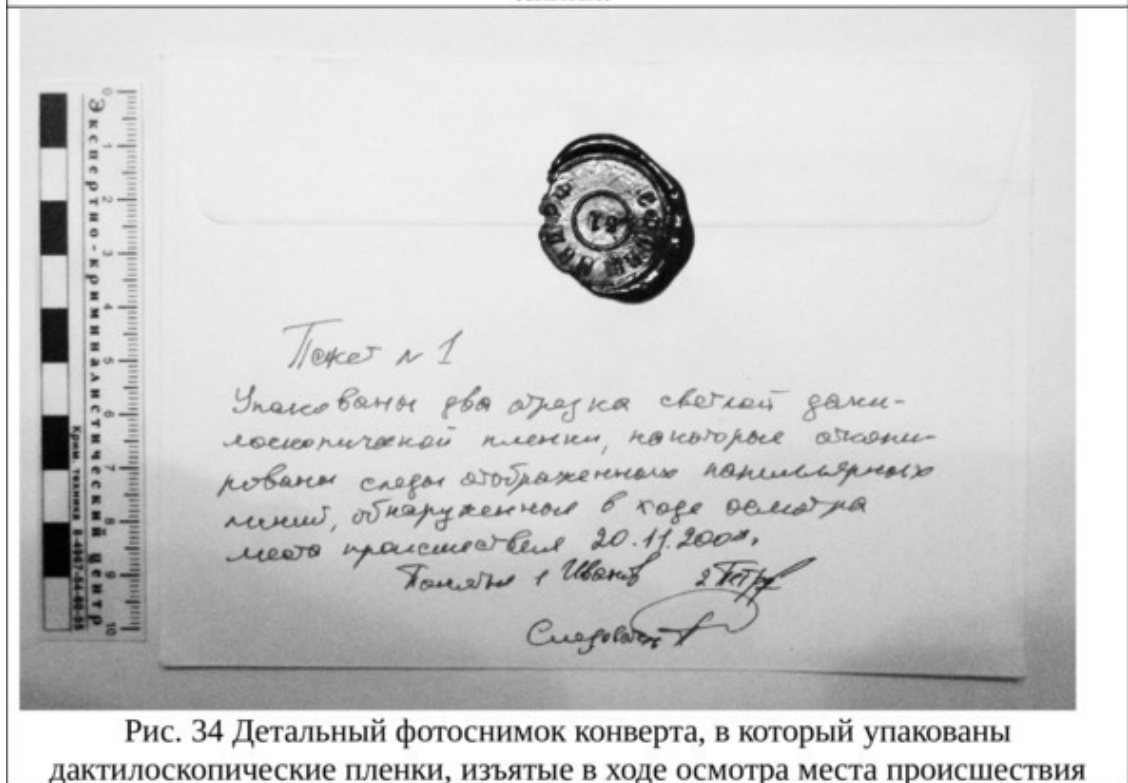 Экспертно-криминалистический центр
Крим. техника
0 1 2 3 4 5 6 7 8 9 10
51
Пакет № 1
Упакованы два отрезка светлой дакти-
лоскопической пленки, на которые откопи-
рованы следы отображенных папиллярных
линий, обнаруженные в ходе осмотра
места происшествия 20.11.200
Понятые 1 Иванов 2 Петров
Следователь
Рис. 34 Детальный фотоснимок конверта, в который упакованы
дактилоскопические пленки, изъятые в ходе осмотра места происшествия